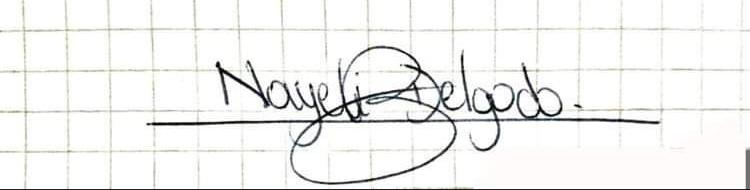 Nayeli Delgado.